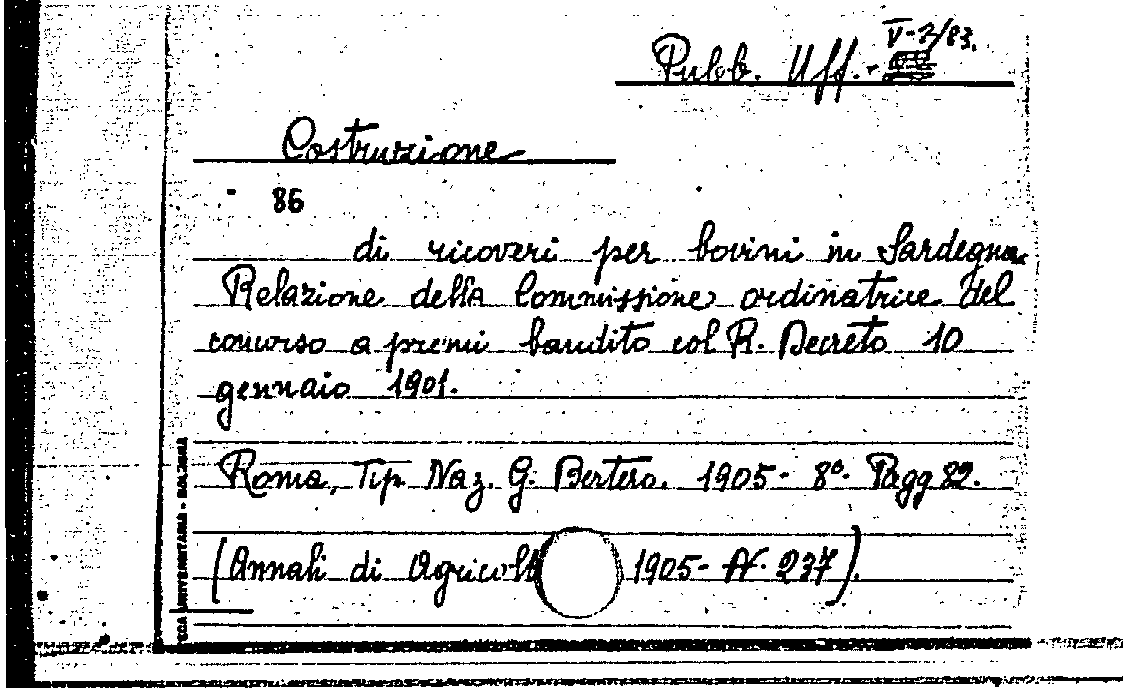 V-2/83.
Pubb. Uff.-
Costruzione
86
di ricoveri per bovini in Sardegna.
Relazione della Commissione ordinatrice del
concorso a premi bandito col R. Decreto 10
gennaio 1901.
Roma, Tip. Naz. G. Bertero. 1905- 8º- Pagg 82.
(Annali di Agricolt 1905- N. 237).